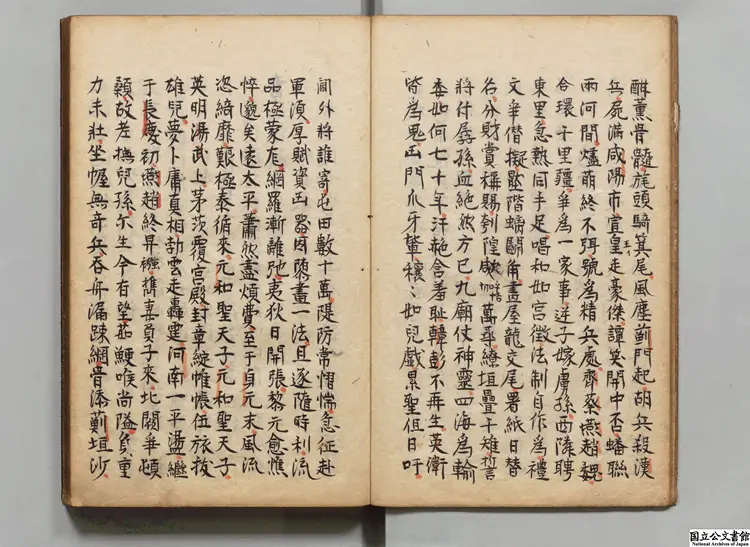 酣薰骨髓旄頭騎箕尾風塵薊門起胡兵殺漢
兵屍滿咸陽市宣皇走豪傑譚笑開中否蟠聯
兩河間燼萌終不弭號為精兵處齊蔡燕趙魏
合環千里疆爭為一家事逆子嫁虜孫西隣聘
東里急熱同手足唱和如宮徵法制自作為禮
文爭僣擬壓階螭鬬角畫屋龍交尾署紙日替
名分財賞稱賜刳隍㰹萬尋繚垣疊千雉誓
將付孱孫血絕然方已九廟仗神靈四海為輸
委如何七十年汗赩含羞恥韓彭不再生英衛
皆為鬼凶門爪牙輩穰〻如兒戲累聖但日吁
閫外將誰寄屯田數十萬隄防常慴惴急征赴
軍須厚賦資凶器因隳畫一法且逐隨時利流
品極蒙尨網羅漸離弛夷狄日開張黎元愈憔
悴邈矣遠太平蕭然盡煩費至于貞元末風流
恣綺靡艱極泰循來元和聖天子元和聖天子
英明湯武上茅茨覆宮殿封章綻帷帳伍旅拔
雄兒夢卜庸真相勃雲走轟霆河南一平盪繼
于長慶初燕趙終舁襁攜妻負子來北闕爭頓
顙故老撫兒孫尔生今有望茹鯁喉尚隘負重
力未壯坐幄無奇兵吞舟漏疎網骨添薊垣沙
国立公文書館
National Archives of Japan